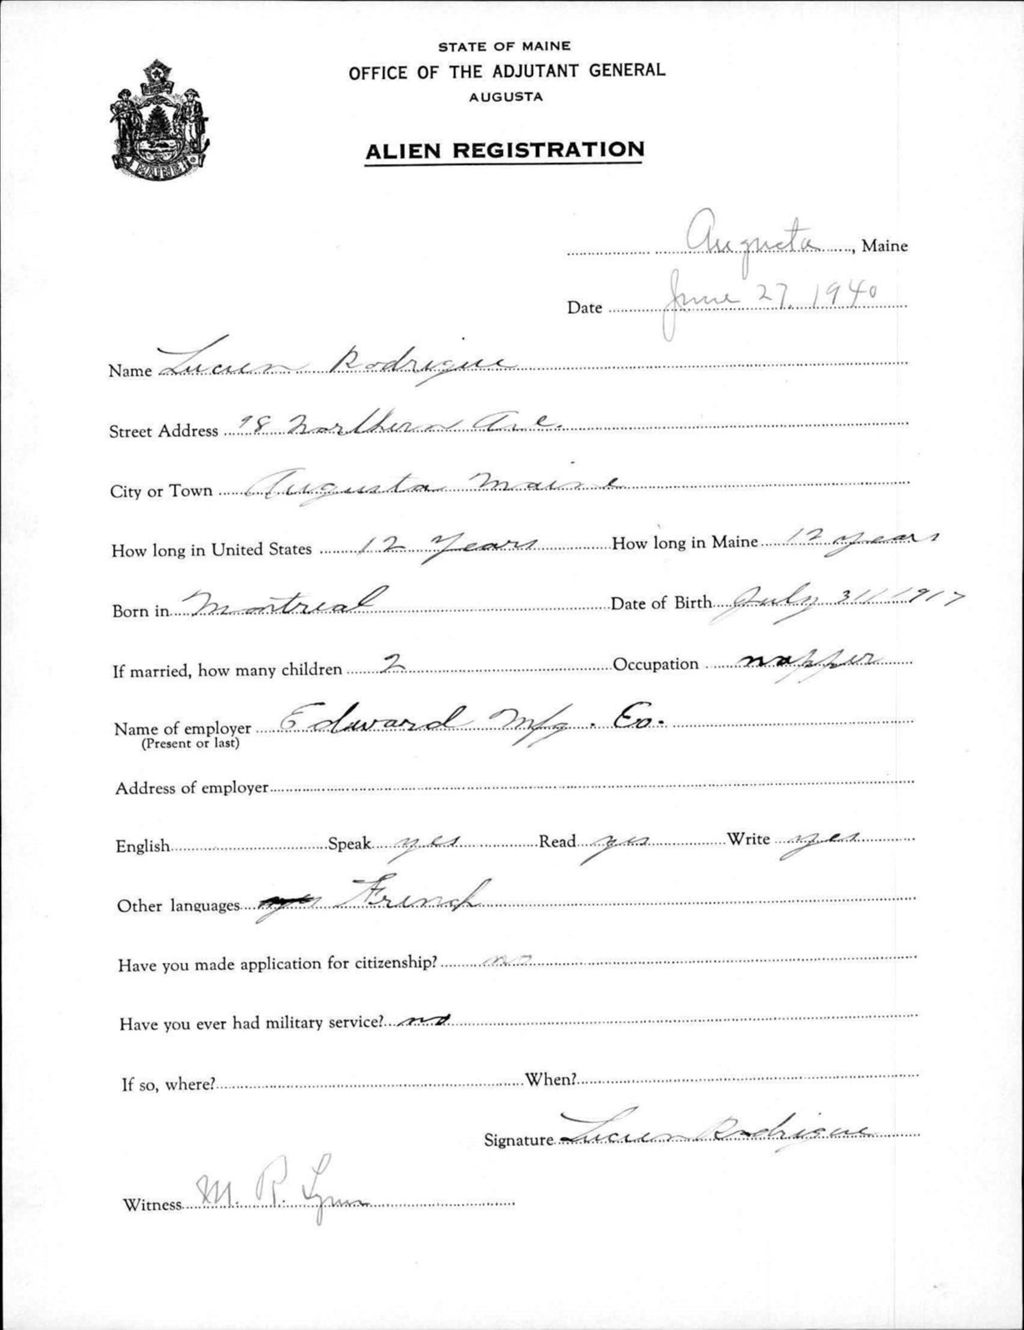 STATE OF MAINE
OFFICE OF THE ADJUTANT GENERAL
AUGUSTA
ALIEN REGISTRATION
MAINE
Augusta, Maine
Date June 27, 1940
Name Lucien Rodrigue
Street Address 98 Northern Ave.
City or Town Augusta Maine
How long in United States 12 years How long in Maine 12 years
Born in Montreal Date of Birth July 31, 1917
If married, how many children 2 Occupation napper
Name of employer Edward Mfg. Co.
(Present or last)
Address of employer
English Speak yes Read yes Write yes
Other languages yes French
Have you made application for citizenship? no
Have you ever had military service? no
If so, where? When?
Signature Lucien Rodrigue
Witness M. R. Lynn